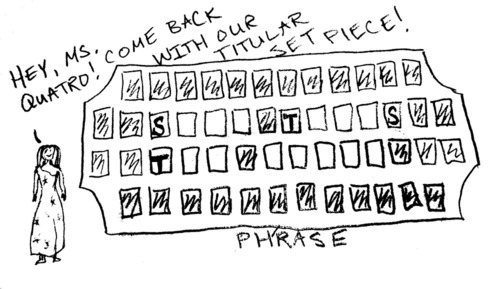 HEY, MS.
QUATRO! COME BACK
WITH OUR
TITULAR
SET PIECE!
S T S
T
PHRASE